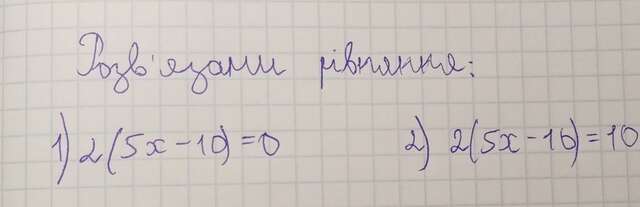 Розв'язати рівняння:
1) 2(5x-10)=0 2) 2(5x-10)=10